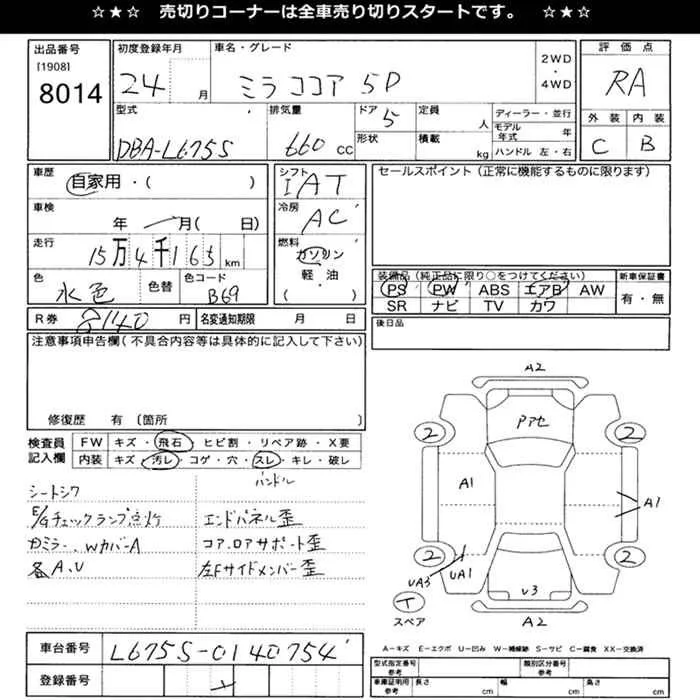 ☆★☆ 売切りコーナーは全車売り切りスタートです。 ☆★☆
出品番号
[1908]
8014
初度登録年月
24 月
車名・グレード
ミラココア 5D
2WD
・
4WD
評価点
RA
外装 内装
C B
型式
DBA-L675S
排気量
660 CC
ドア
5
形状
定員
人
積載
kg
ディーラー・並行
モデル年式 年
ハンドル 左・右
車歴
自家用・( )
車検
年 月( 日)
走行
15万4千165km
色
水色
色替
色コード
B69
シフト
IAT
冷房
AC
燃料
ガソリン
軽・油
( )
セールスポイント(正常に機能するものに限ります)
装備品(純正品に限り○をつけてください)
PS PW ABS エアB AW
SR ナビ TV カワ
新車保証書
有・無
R券 8140 円
名変通知期限 月 日
後日品
注意事項申告欄(不具合内容等は具体的に記入して下さい)
修復歴 有 〔箇所 〕
検査員記入欄
FW キズ・飛石・ヒビ割・リペア跡・X要
内装 キズ・汚レ・コゲ・穴・スレ・キレ・破レ
ハンドル
シートシワ
E/gチェックランプ点灯
エンドパネル歪
ミラー、WカバーA
コア、ロアサポート歪
各A、U
左Fサイドメンバー歪
A2
アアセ
2
2
A1
A1
2
2
UA3
UA1
U3
T
スペア
A2
車台番号
L675S-0140754
登録番号
A-キズ E-エクボ U-凹み W-補修跡 S-サビ C-腐食 XX-交換済
型式指定番号
参考
類別区分番号
参考
車庫証明用
参考
長さ cm
幅 cm
高さ cm